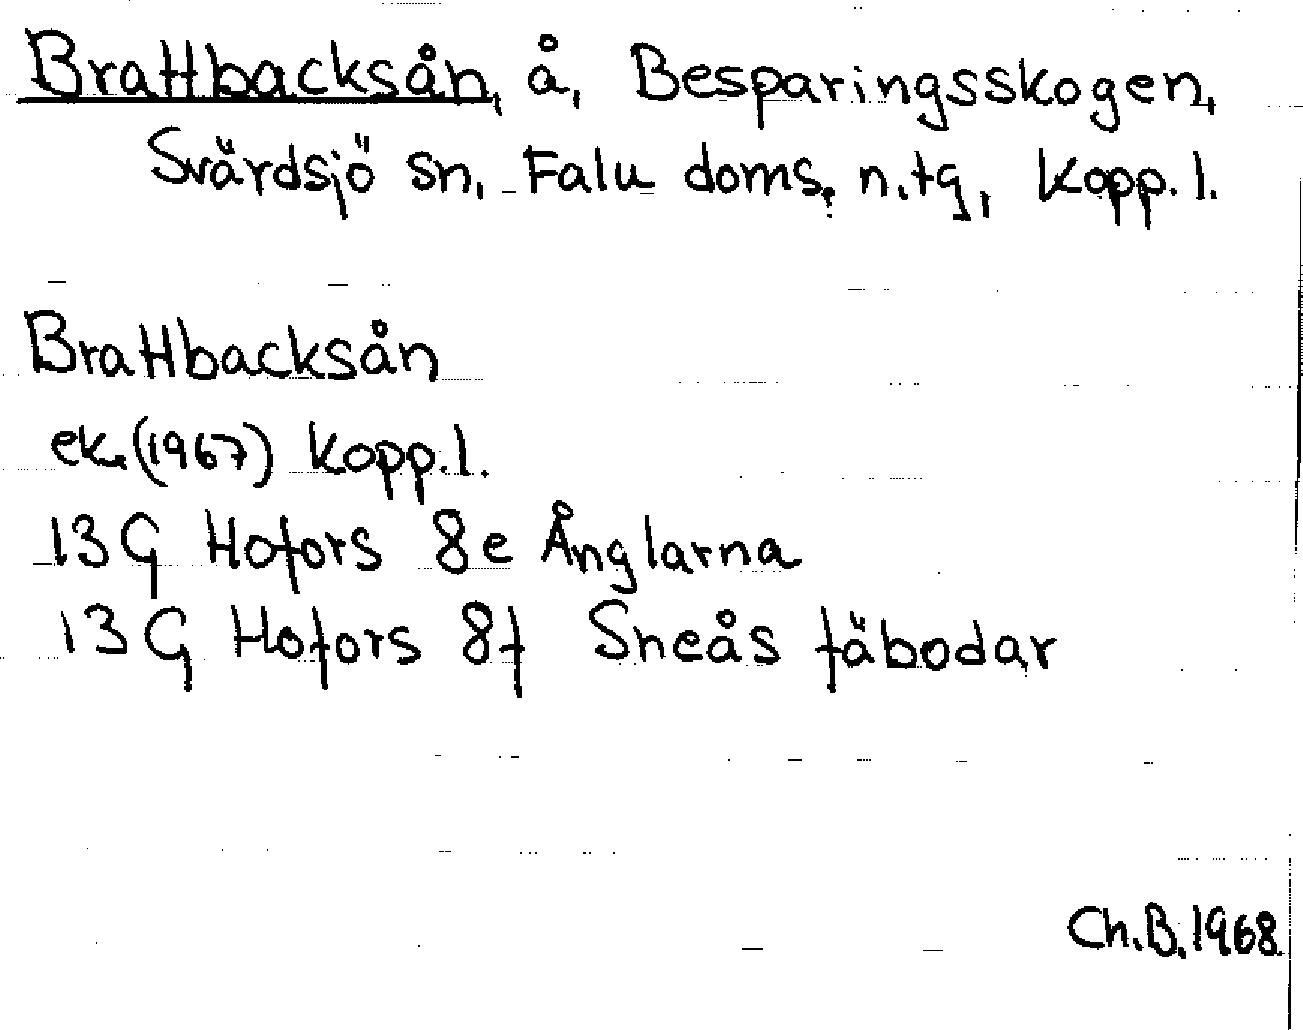 Brattbacksån, å, Besparingsskogen,
Svärdsjö sn, Falu doms. n.tg, Kopp.l.
Brattbacksån
ek. (1967) Kopp.l.
13 G Hofors 8e Ånglarna
13 G Hofors 8f Sneås fäbodar
Ch.B. 1968.